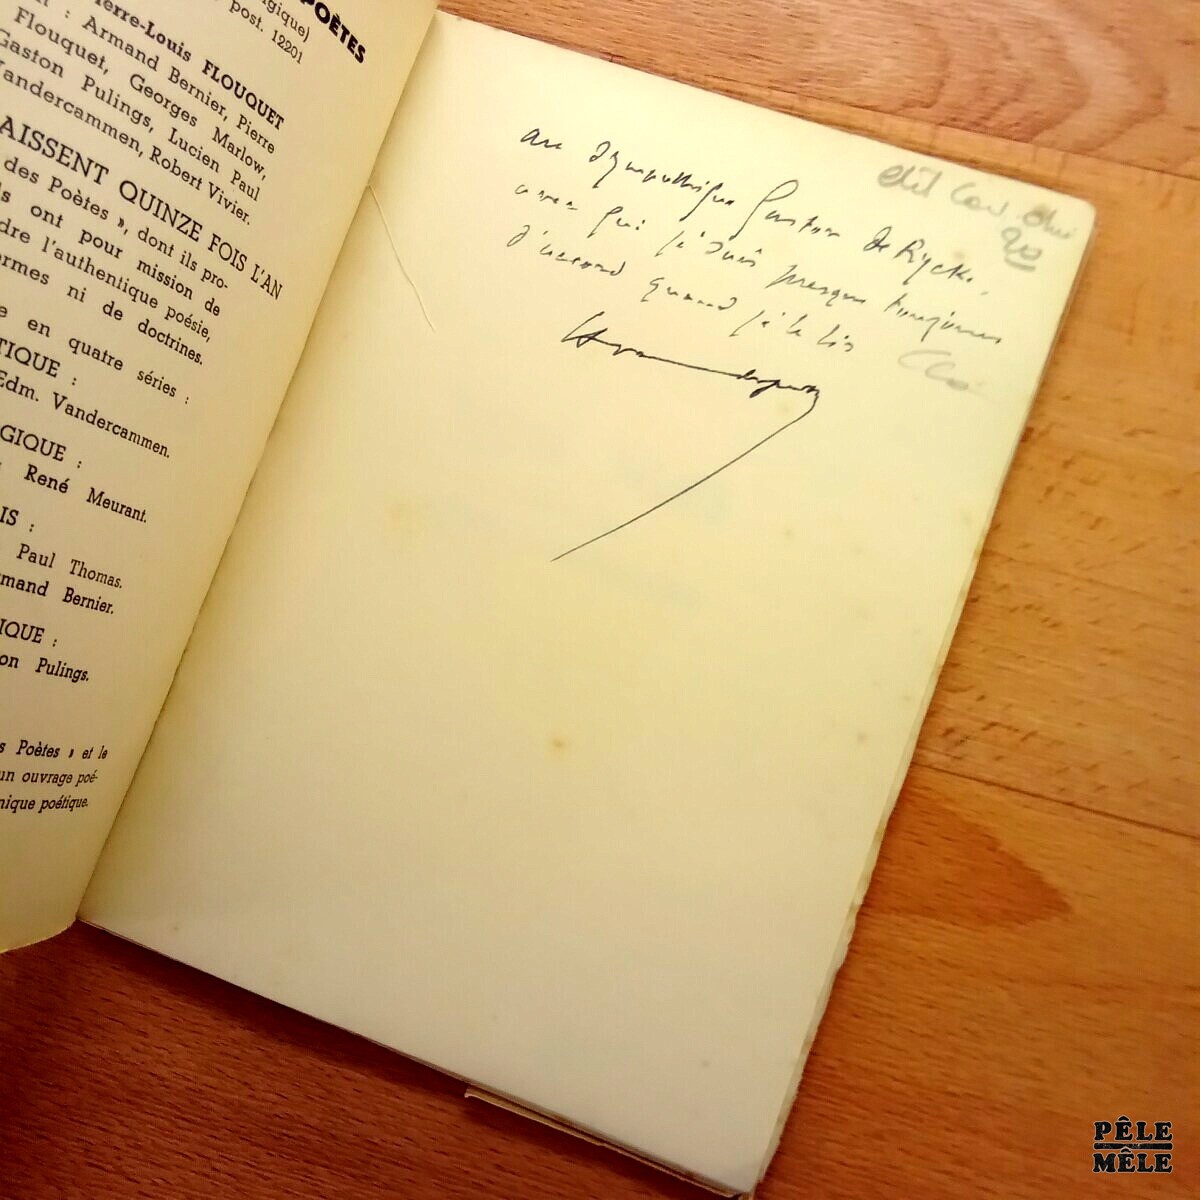 POÈTES
lgique)
post. 12201
erre-Louis FLOUQUET
: Armand Bernier, Pierre
Flouquet, Georges Marlow,
Gaston Pulings, Lucien Paul
Vandercammen, Robert Vivier.
AISSENT QUINZE FOIS L'AN
des Poètes », dont ils pro-
ls ont pour mission de
dre l'authentique poésie,
ormes ni de doctrines.
e en quatre séries :
TIQUE :
Edm. Vandercammen.
GIQUE :
René Meurant.
IS :
Paul Thomas.
mand Bernier.
IQUE :
on Pulings.
s Poètes » et le
un ouvrage poé-
nique poétique.
au sympathique Gaston de Rycke,
avec qui je suis presque toujours
d'accord quand je le lis
20
PÊLE
MÊLE